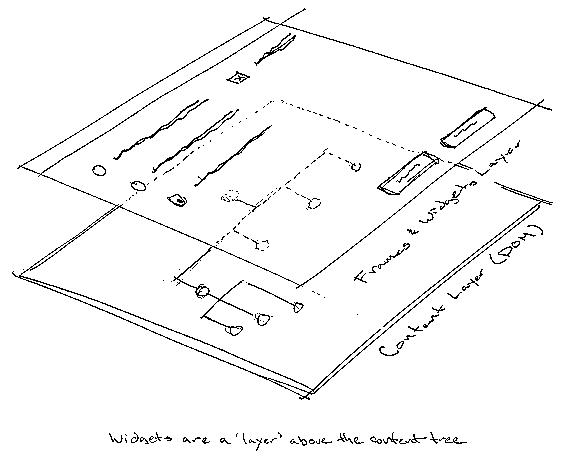 Frames & Widgets Layer
Content Layer (DOM)
Widgets are a 'layer' above the content tree